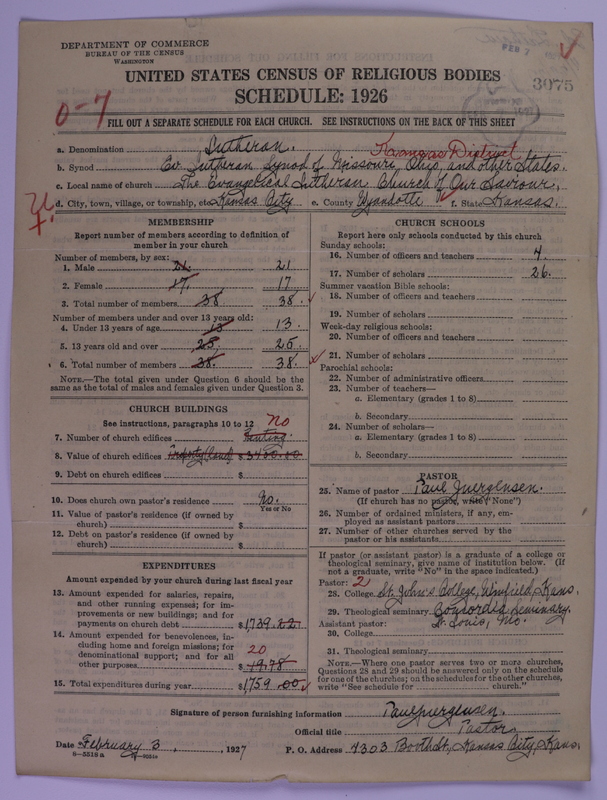 DEPARTMENT OF COMMERCE
BUREAU OF THE CENSUS
WASHINGTON
FEB 7
UNITED STATES CENSUS OF RELIGIOUS BODIES
SCHEDULE: 1926
3075
0-7
FILL OUT A SEPARATE SCHEDULE FOR EACH CHURCH. SEE INSTRUCTIONS ON THE BACK OF THIS SHEET
a. Denomination Lutheran.
Kansas District
b. Synod Ev. Lutheran Synod of Missouri, Ohio, and other States.
c. Local name of church The Evangelical Lutheran Church of Our Saviour.
d. City, town, village, or township, etc. Kansas City e. County Wyandotte f. State Kansas.
MEMBERSHIP
Report number of members according to definition of member in your church
Number of members, by sex:
1. Male 21. 21
2. Female 17. 17
3. Total number of members 38. 38.
Number of members under and over 13 years old:
4. Under 13 years of age 13 13.
5. 13 years old and over 25. 25.
6. Total number of members 38. 38.
NOTE.—The total given under Question 6 should be the same as the total of males and females given under Question 3.
CHURCH BUILDINGS
See instructions, paragraphs 10 to 12 no
7. Number of church edifices Renting
8. Value of church edifices Property (land) $3,400.00
9. Debt on church edifices $
10. Does church own pastor's residence No.
Yes or No
11. Value of pastor's residence (if owned by church) $
12. Debt on pastor's residence (if owned by church) $
EXPENDITURES
Amount expended by your church during last fiscal year
13. Amount expended for salaries, repairs, and other running expenses; for improvements or new buildings; and for payments on church debt $1739.22
14. Amount expended for benevolences, including home and foreign missions; for denominational support; and for all other purposes 20 $19.78
15. Total expenditures during year $1759.00
CHURCH SCHOOLS
Report here only schools conducted by this church
Sunday schools:
16. Number of officers and teachers 4.
17. Number of scholars 26.
Summer vacation Bible schools:
18. Number of officers and teachers
19. Number of scholars
Week-day religious schools:
20. Number of officers and teachers
21. Number of scholars
Parochial schools:
22. Number of administrative officers
23. Number of teachers—
a. Elementary (grades 1 to 8)
b. Secondary
24. Number of scholars—
a. Elementary (grades 1 to 8)
b. Secondary
PASTOR
25. Name of pastor Paul Juergensen.
(If church has no pastor, write "None")
26. Number of ordained ministers, if any, employed as assistant pastors
27. Number of other churches served by the pastor or his assistants
If pastor (or assistant pastor) is a graduate of a college or theological seminary, give name of institution below. (If not a graduate, write "No" in the space indicated.)
Pastor: 2
28. College St. John's College, Winfield, Kans.
29. Theological seminary Concordia Seminary.
Assistant pastor: St. Louis, Mo.
30. College
31. Theological seminary
NOTE.—Where one pastor serves two or more churches, Questions 28 and 29 should be answered only on the schedule for one of the churches; on the schedules for the other churches, write "See schedule for church."
Signature of person furnishing information Paul Juergensen.
Official title Pastor
Date February 3, 1927 P. O. Address 1303 Booth St., Kansas City, Kans.
8—5516 a